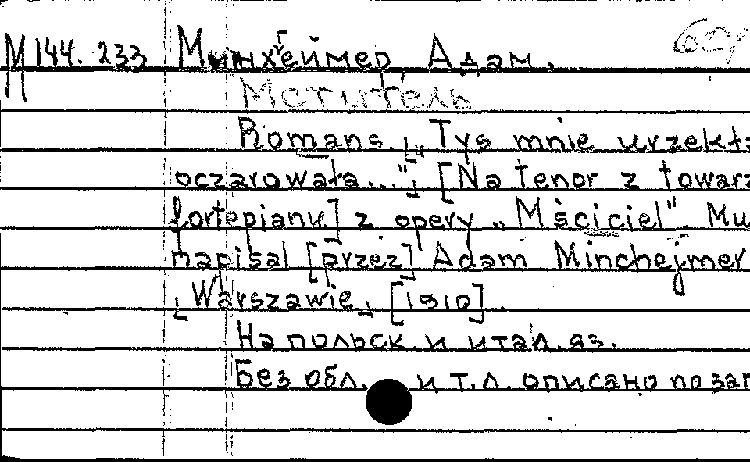 М 144.233 Минхеймер, Адам.
Мститель
Romans „Tys mnie urzekła
oczarowała..." [Na tenor z towarz
fortepianu] z opery „Mściciel" Mu
napisal [przez] Adam Minchejmer
[Warszawie, [1910].
На польск. и итал. яз.
Без обл. и т.л. описано по заг